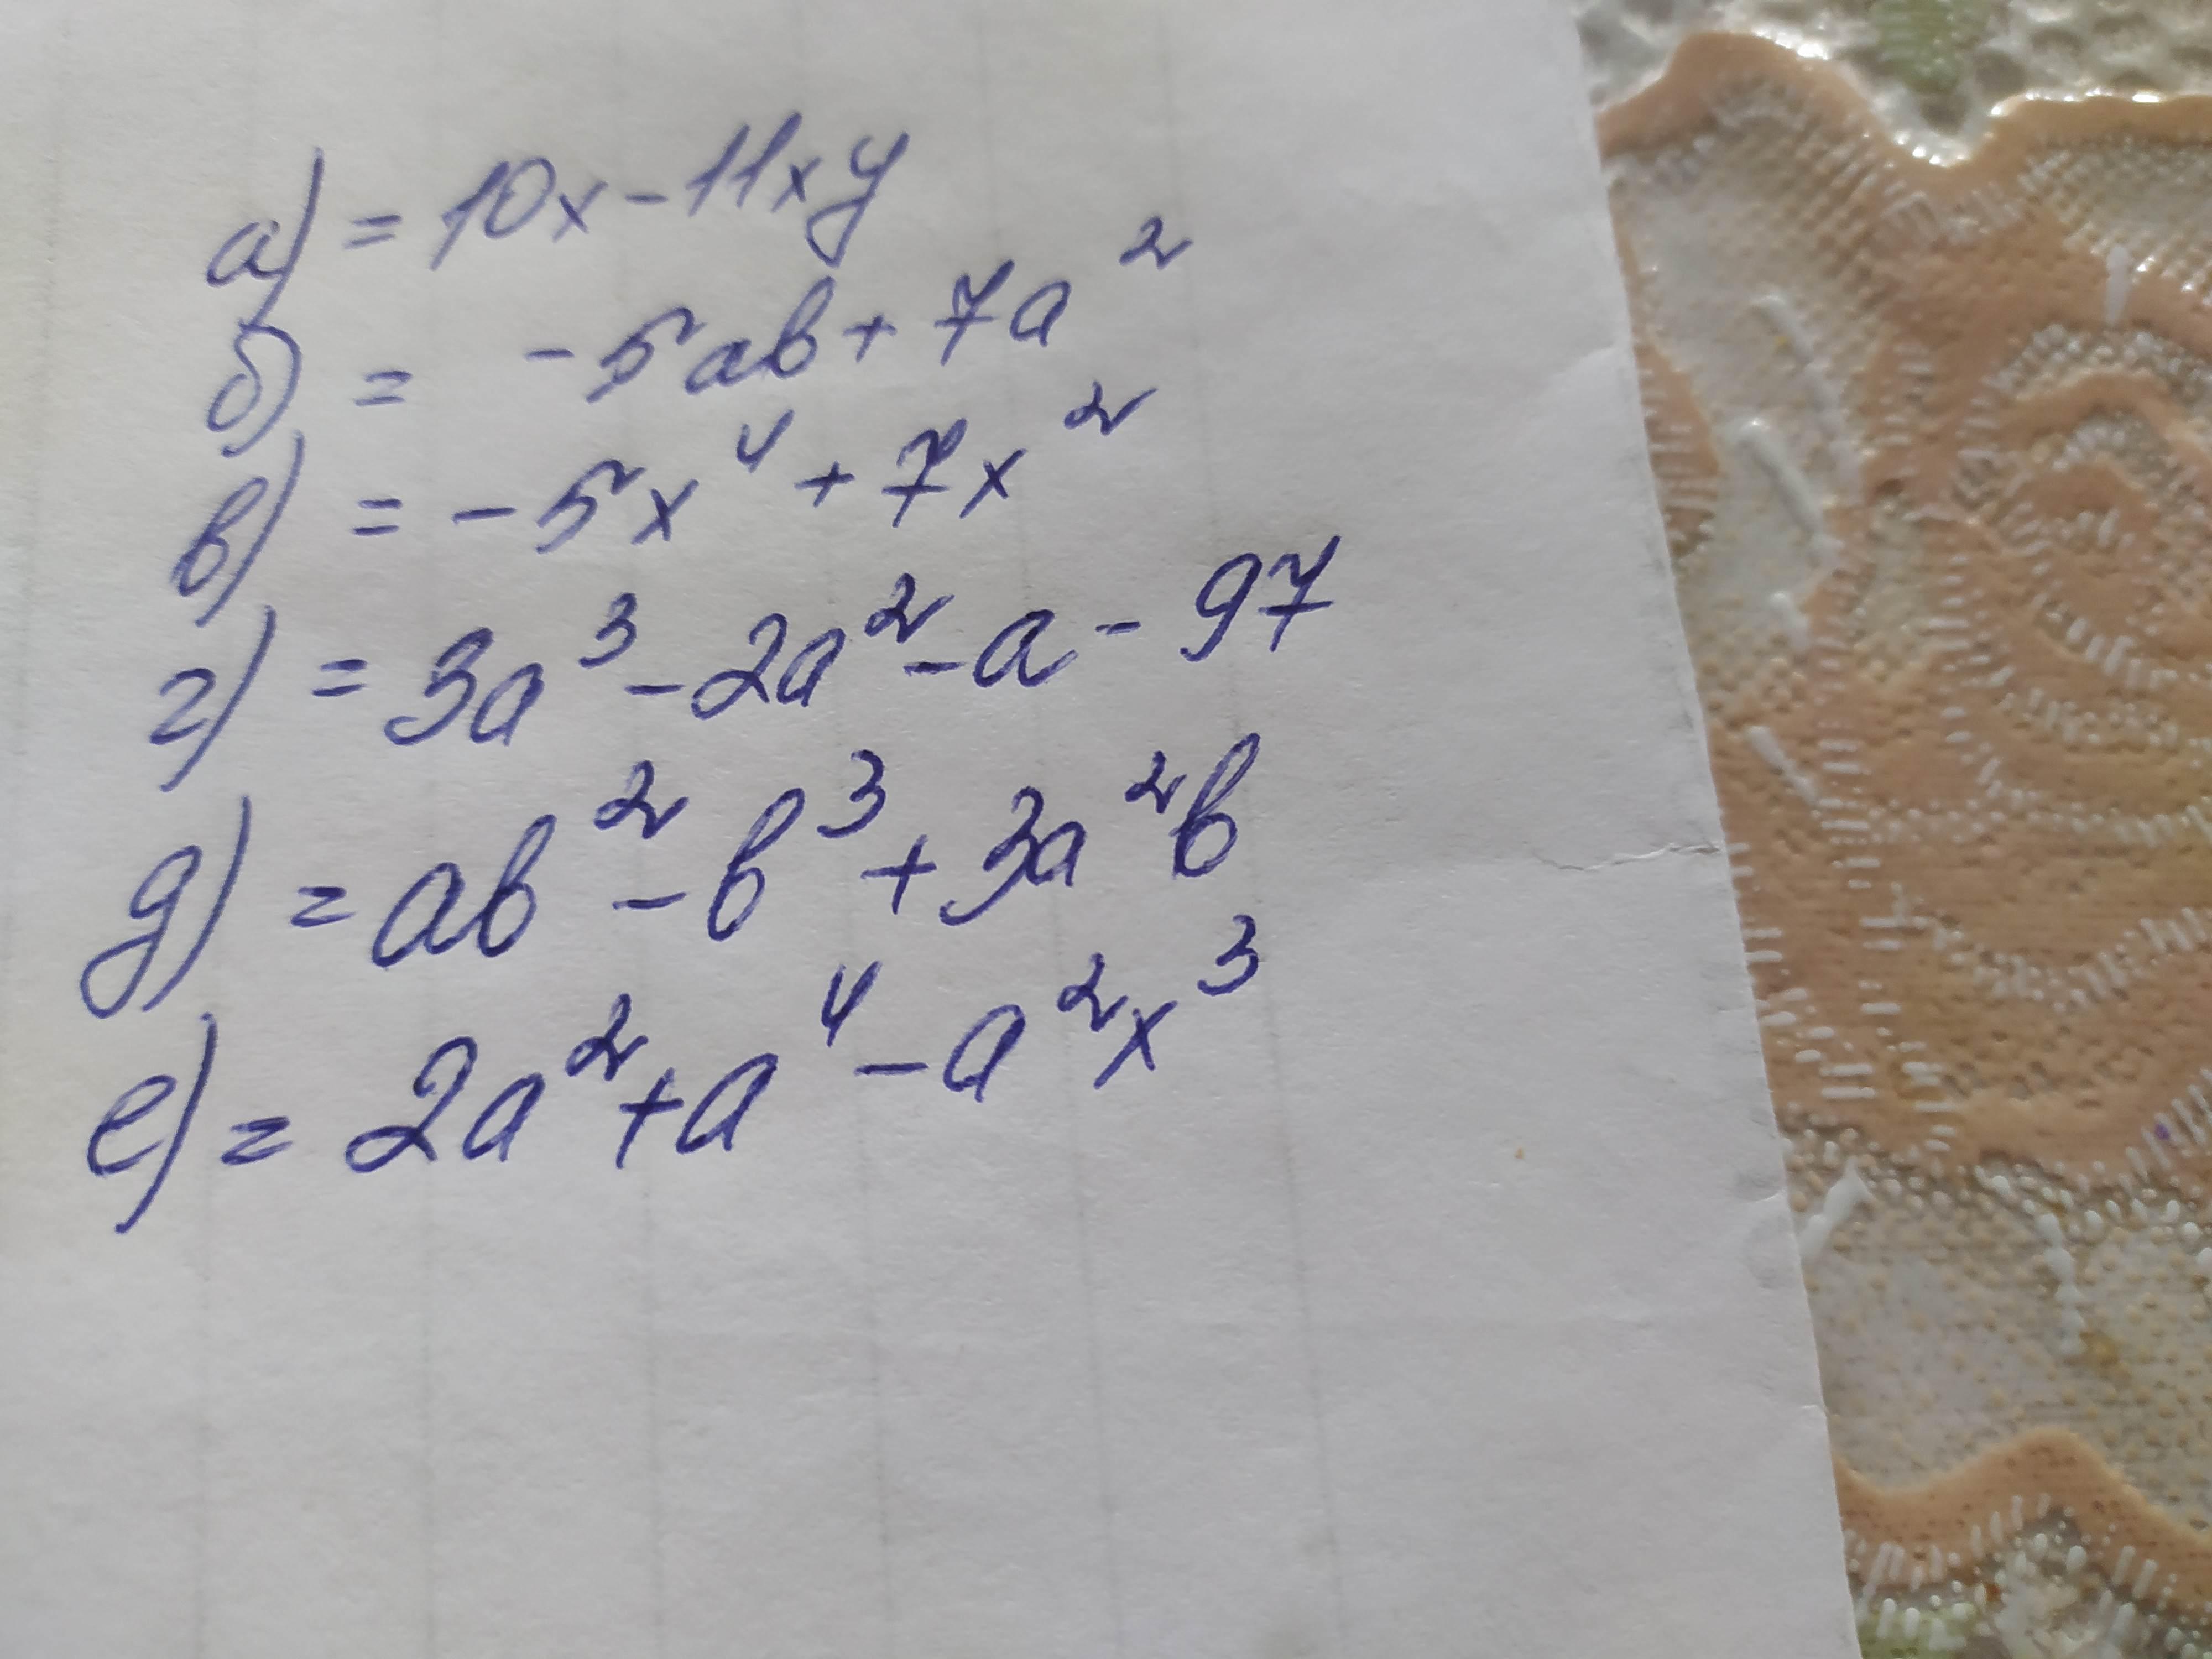 а) = 10x - 11xy
б) = - 5ab + 7a²
в) = - 5x⁴ + 7x²
г) = 3a³ - 2a² - a - 97
д) = ab² - b³ + 3a²b
е) = 2a² + a⁴ - a²x³